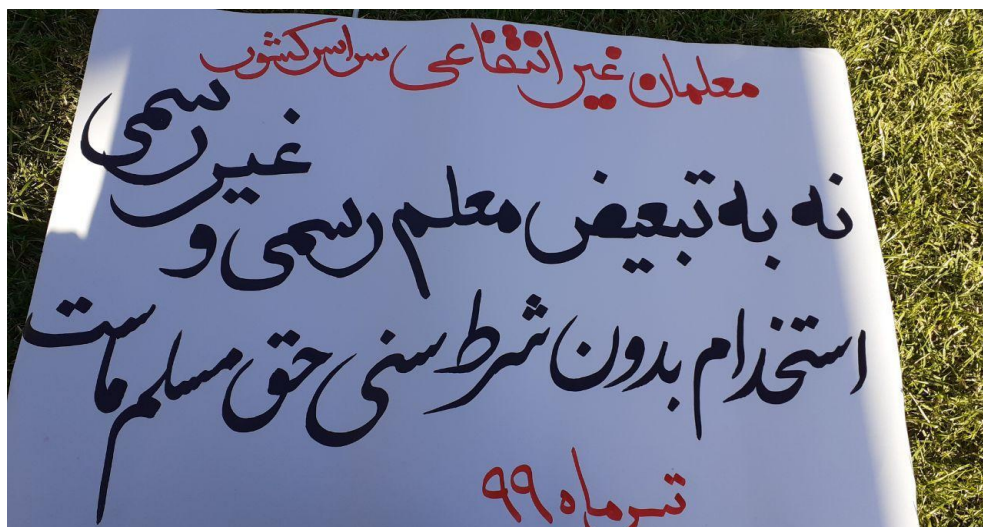 معلمان غیر انتفاعی سراسر کشور
نه به تبعیض معلم رسمی و غیر رسمی
استخدام بدون شرط سنی حق مسلم ماست
تیر ماه ۹۹